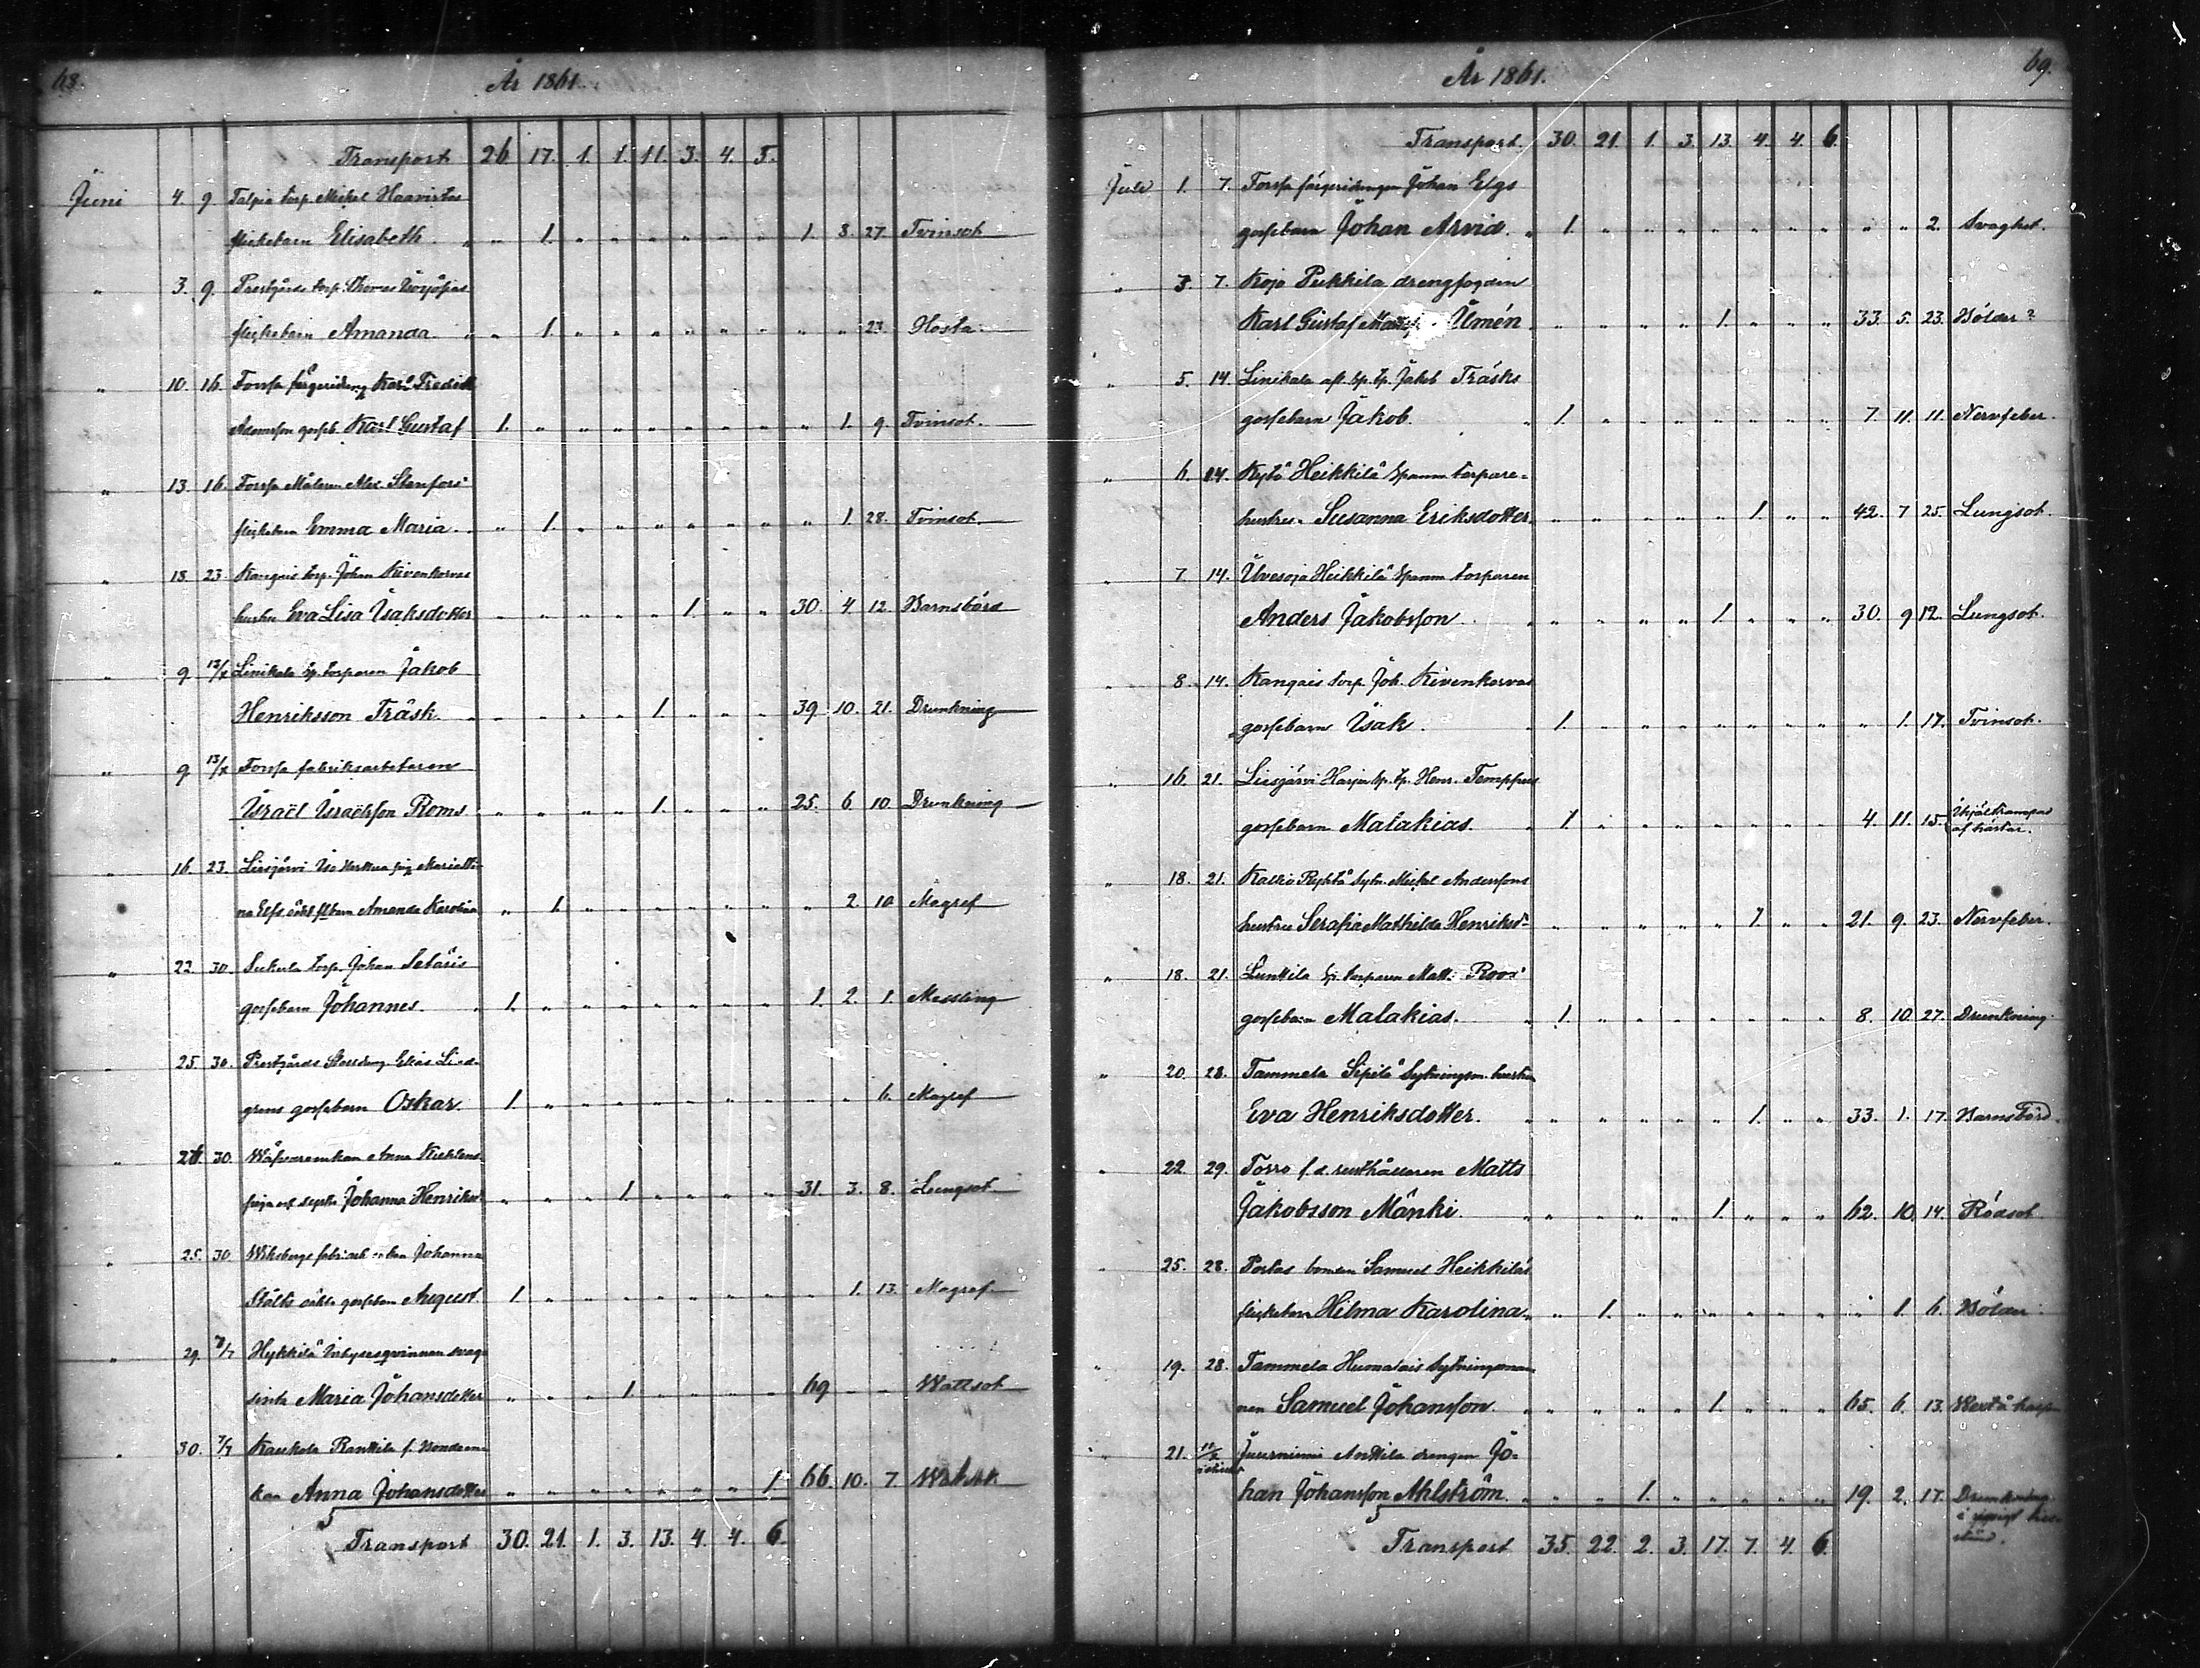 68.
År 1861.
Transport 26. 17. 1. 1. 11. 3. 4. 5.
Juni 4. 9. Talpia torp. Mickel Haavistos
flickebarn Elisabeth. " " 1. " " " " " " 1. 3. 27. Tvinsot
" 3. 9. Prestgårds torp. Thomas
flickebarn Amanda. " " 1. " " " " " " " " 23. Hosta
" 10. 16. Forssa färgeridreng Karl Fredrik
Adamsson gosseb. Karl Gustaf 1. " " " " " " " " 1. 9. Tvinsot.
" 13. 16. Forssa Målaren Alex. Stenfors'
flickebarn Emma Maria. " 1. " " " " " " " 1. 28. Tvinsot.
" 18. 23. Kangais torp. Johan Kivenkorvas
hustru Eva Lisa Isaksdotter " " " " " 1. " " 30. 4. 12. Barnsbörd
" 9. 13/X Linikkala sp. torparen Jakob
Henriksson Träsk. " " " " 1. " " " 39. 10. 21. Drunkning
" 9. 13/X Forssa fabriksarbetaren
Israël Israëlsson Roms " " " " 1. " " " 25. 6. 10. Drunkning
" 16. 23. Liesjärvi Iso pig. Maria
na oäkt. fl.barn Amanda Karolina " 1. " " " " " " " 2. 10. Magref
" 22. 30. Sukula torp. Johan
gossebarn Johannes. " 1. " " " " " " " 1. 2. 1. Messling
" 25. 30. Prestgårds Stalldreng Elias Lind-
grens gossebarn Oskar 1. " " " " " " " " " 6. Magref
" 26. 30. Anna
Johanna Henriksd. " " " 1. " " " " 31. 3. 8. Lungsot.
" 25. 30. Wiksbergs Johanna
Ståhls oäkta gossebarn August. 1. " " " " " " " " 1. 13. Magref
" 29. 7/7 Hykkilä Inhysesqvinnan svag-
sinta Maria Johansdotter " " " 1. " " " " 69 " " Wattsot
" 30. 7/7 Kaukola Ranttila f. Bondeen-
kan Anna Johansdotter " " " " " " " 1. 66. 10. 7.
5
Transport 30. 21. 1. 3. 13. 4. 4. 6.
69.
År 1861.
Transport. 30. 21. 1. 3. 13. 4. 4. 6.
Juli 1. 7. Forssa färgeridrengen Johan Elgs
gossebarn Johan Arvid. " 1. " " " " " " " " " 2. Svaghet.
" 3. 7. Kojo Pukkila drengfogden
Karl Gustaf Ulmén " " " " 1. " " " 33. 5. 23. Bölder?
" 5. 14. Linikala afl. sp. tp. Jakob Träsks
gossebarn Jakob. " 1. " " " " " " " 7. 11. 11. Nervfeber.
" 6. 14. Kytö Heikkilä Spanm torpare-
hustru Susanna Eriksdotter. " " " " " 1. " " 42. 7. 25. Lungsot.
" 7. 14. Heikkilä Spanm torparen
Anders Jakobsson. " " " " 1. " " " 30. 9. 12. Lungsot.
" 8. 14. Kangais torp. Joh. Kivenkorvas
gossebarn Isak. " 1. " " " " " " " " 1. 17. Tvinsot.
" 16. 21. Liesjärvi Harju sp. tp. Henr. Temppus
gossebarn Malakias. " 1. " " " " " " " 4. 11. 15. Ihjältrampad
af hästar.
" 18. 21. Kallio Sytn. Mickel Anderssons
hustru Serafia Mathilda Henriksd:r " " " " " 1. " " 21. 9. 23. Nervfeber.
" 18. 21. Lunkkila sp. torparen Matts Roos'
gossebarn Malakias. " 1. " " " " " " " 8. 10. 27. Drunkning.
" 20. 28. Tammela Sipilä Sytningsm. hustru
Eva Henriksdotter. " " " " " 1. " " 33. 1. 17. Barnsbörd.
" 22. 29. Torro f. d. rusthållaren Matts
Jakobsson Mänki. " " " " 1. " " " 62. 10. 14. Rödsot.
" 25. 28. Portas bonden Samuel Heikkiläs
flickebarn Hilma Karolina. " " 1. " " " " " " " 1. 6. Bölder.
" 19. 28. Tammela Humalais Sytningsman-
nen Samuel Johansson. " " " " 1. " " " 65. 6. 13.
" 21. Juurniemi Anttila drengen Jo-
han Johansson Ahlström. " " " 1. " " " " " 19. 2. 17. Drunkning
5
Transport 35. 22. 2. 3. 17. 7. 4. 6.